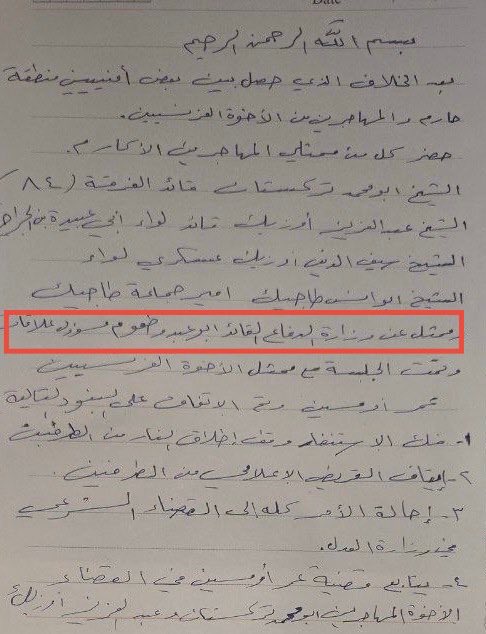 Date
بسم الله الرحمن الرحيم
بعد الخلاف الذي حصل بين بعض أمنيين منطقة
حارم والمهاجرين من الأخوة الفرنسيين.
حضر كل من ممثلي المهاجرين الأكارم.
الشيخ ابو محمد تركستان قائد الفرقة (٨٤)
الشيخ عبدالعزيز أوزبك قائد لواء أبي عبيدة بن الجراح
الشيخ سيف الدين اوزبك عسكري لواء
الشيخ ابو انس طاجيك امير جماعة طاجيك
وممثل عن وزارة الدفاع القائد ابو عبدو طعوم مسؤول علاقات
وتمت الجلسة مع ممثل الأخوة الفرنسيين
عمر اومسين وتم الاتفاق على البنود التالية
١- فك الاستنفار ووقف إطلاق النار من الطرفين
٢- إيقاف التحريض الإعلامي من الطرفين.
٣- إحالة الأمر كله إلى القضاء الشرعي
في وزارة العدل.
٤- يتابع قضية عمر أومسين في القضاء
الأخوة المهاجرين ابو محمد تركستان وعبد العزيز اوزبك